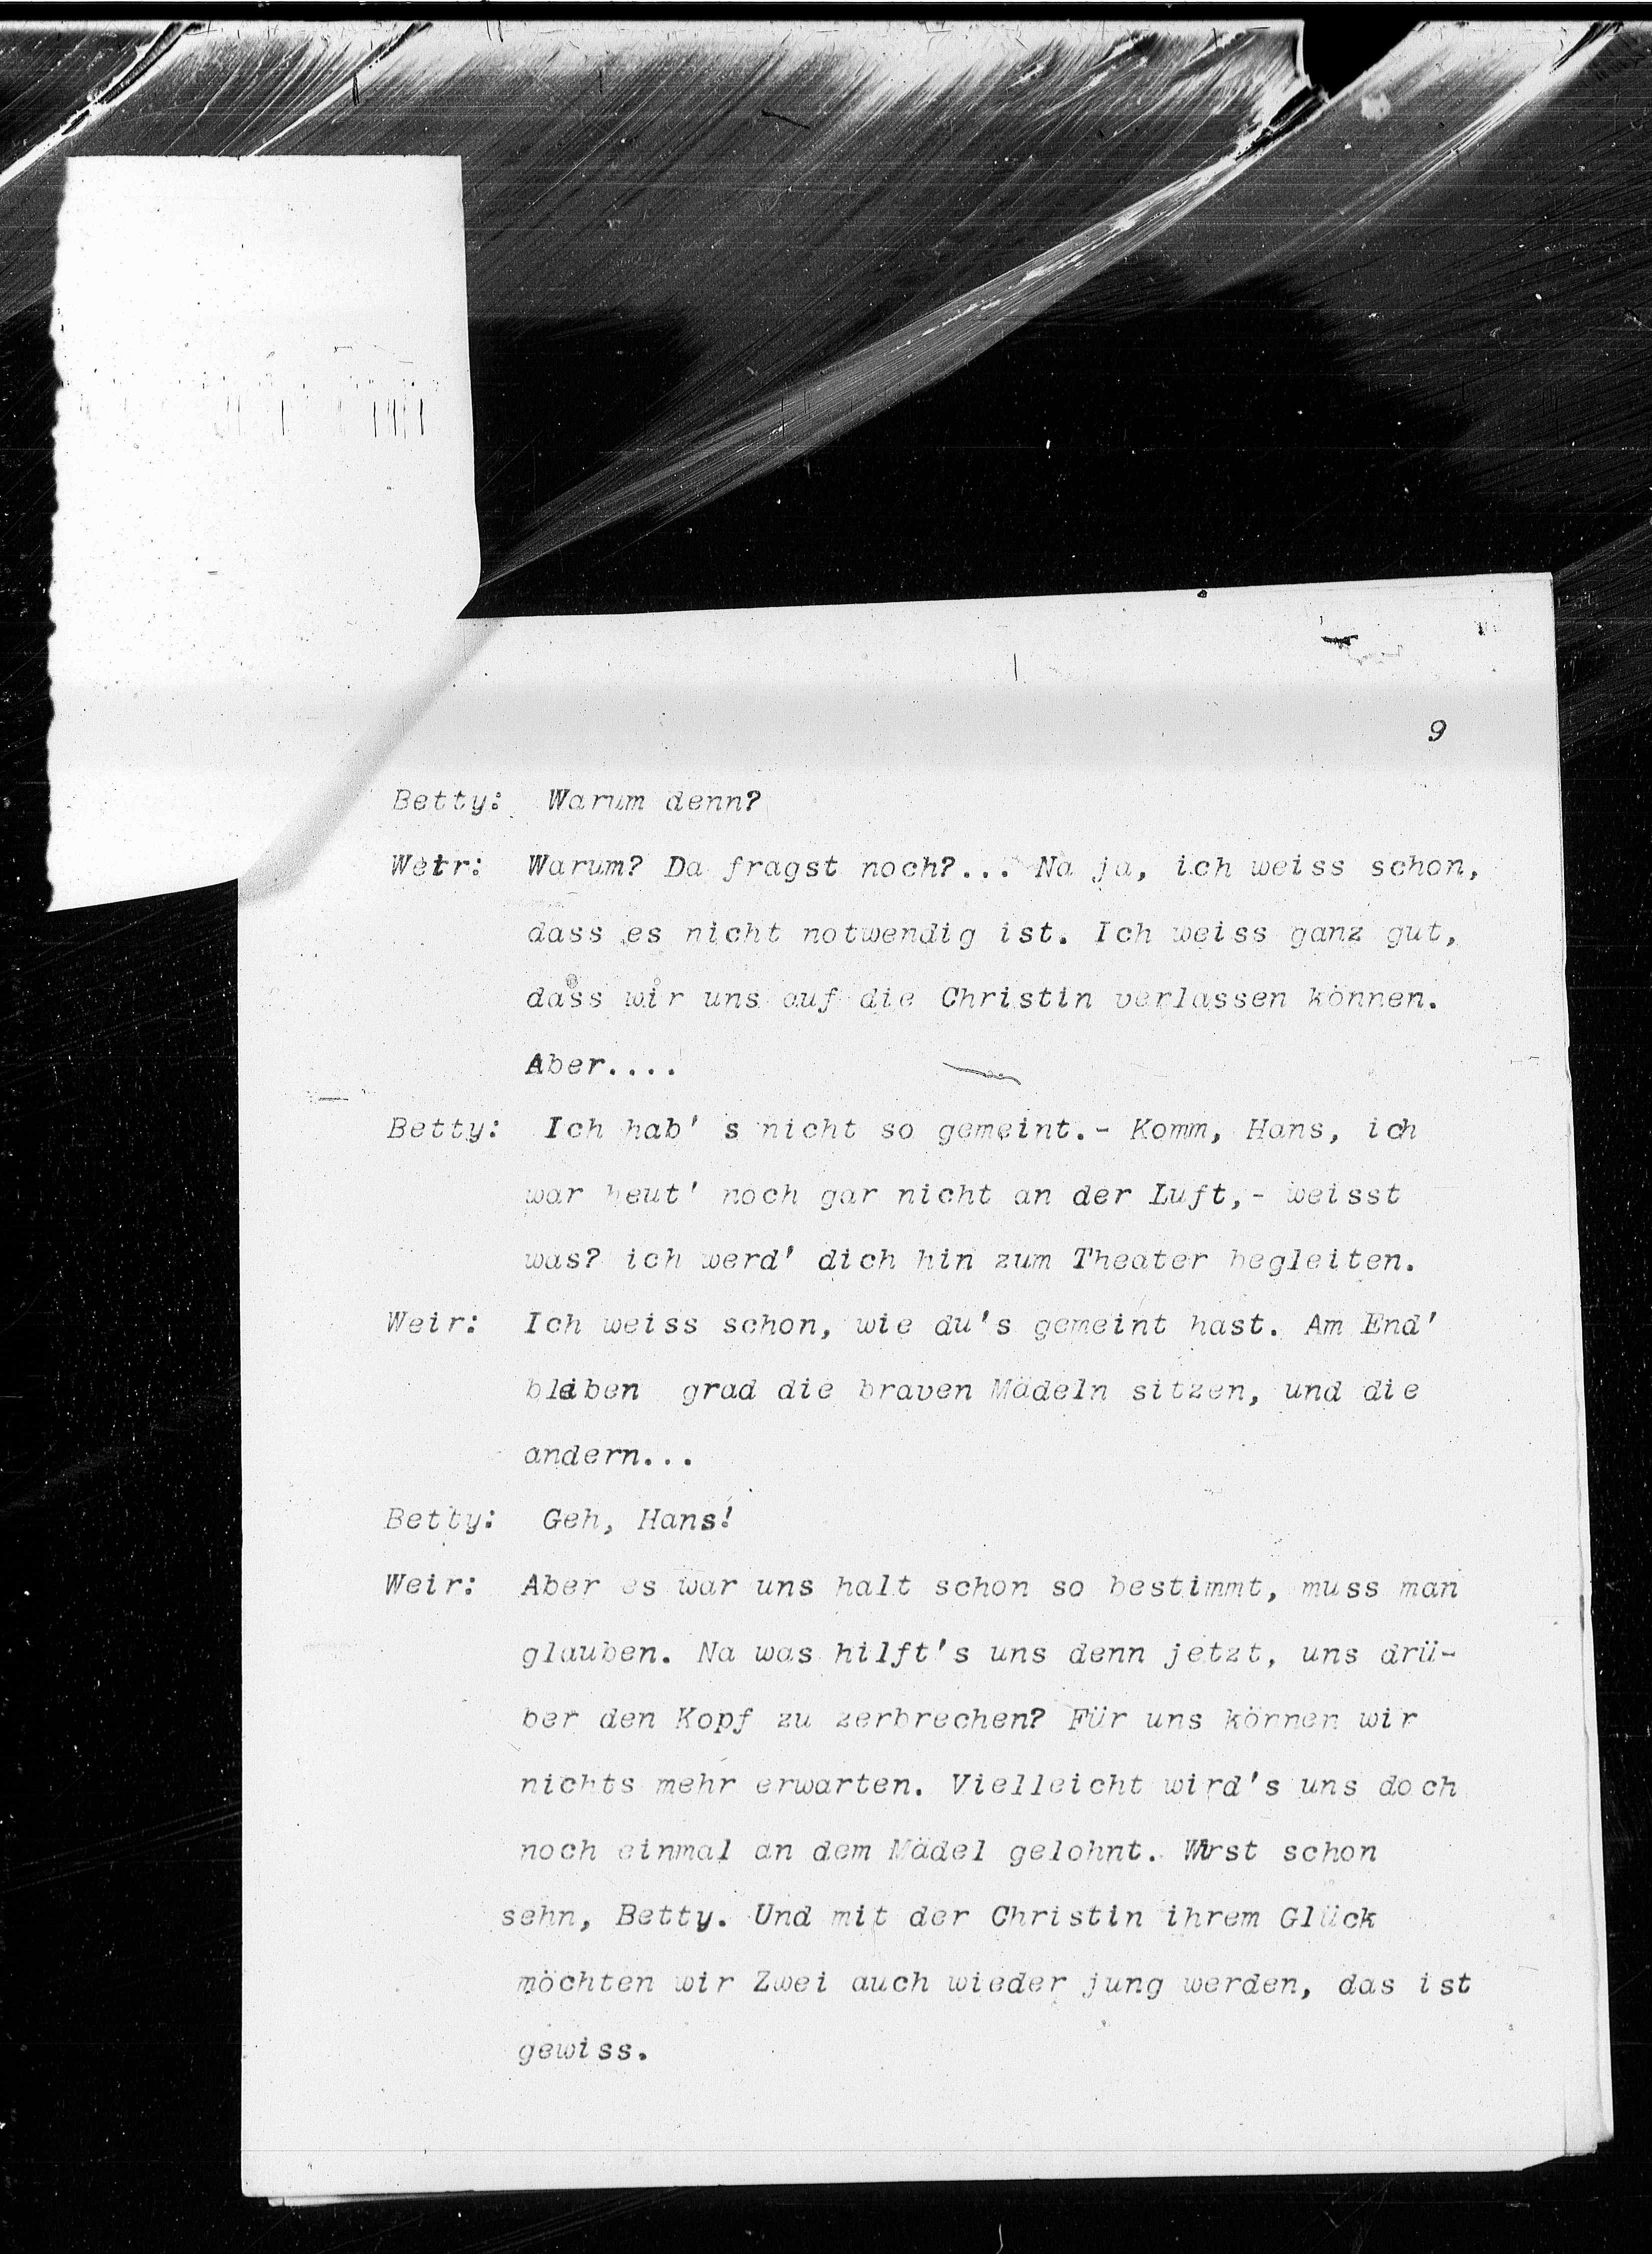 9
Betty: Warum denn?
Weir: Warum? Da fragst noch?... Na ja, ich weiss schon,
dass es nicht notwendig ist. Ich weiss ganz gut,
dass wir uns auf die Christin verlassen können.
Aber....
Betty: Ich hab' s nicht so gemeint.- Komm, Hans, ich
war heut' noch gar nicht an der Luft,- weisst
was? ich werd' dich hin zum Theater begleiten.
Weir: Ich weiss schon, wie du's gemeint hast. Am End'
bleiben grad die braven Mädeln sitzen, und die
andern...
Betty: Geh, Hans!
Weir: Aber es war uns halt schon so bestimmt, muss man
glauben. Na was hilft's uns denn jetzt, uns drü-
ber den Kopf zu zerbrechen? Für uns können wir
nichts mehr erwarten. Vielleicht wird's uns doch
noch einmal an dem Mädel gelohnt. Wirst schon
sehn, Betty. Und mit der Christin ihrem Glück
möchten wir Zwei auch wieder jung werden, das ist
gewiss.